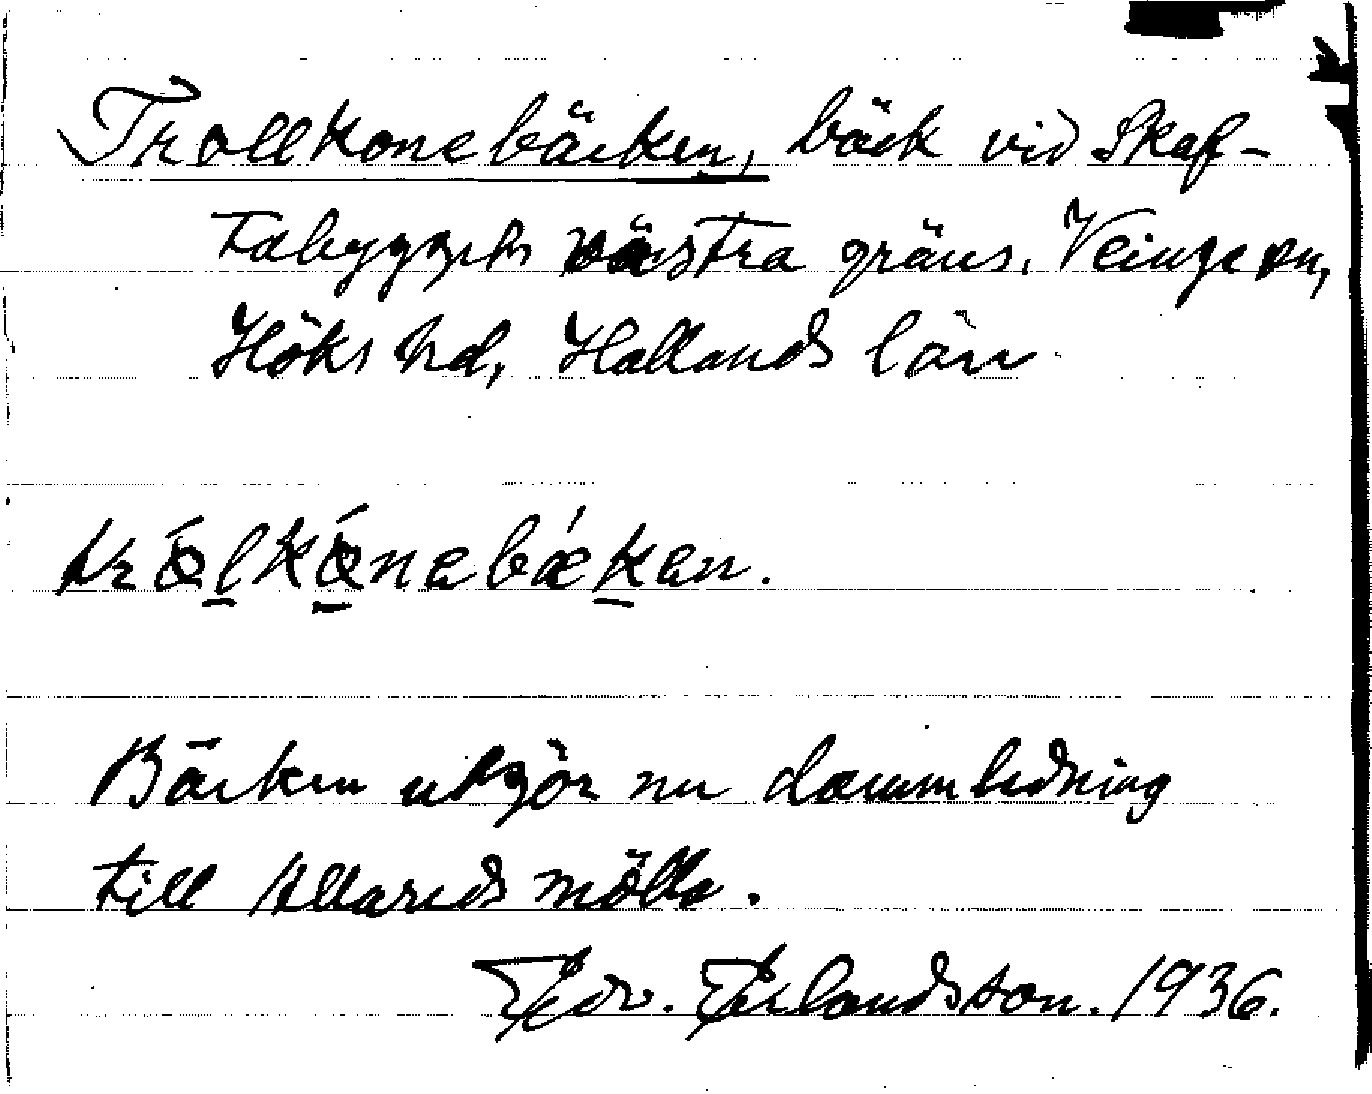 Trollkonebäcken, bäck vid Skaf-
tabyggets västra gräns. Veinge sn,
Höks hd, Hallands län
trǿlkǿnabǽkan.
Bäcken utgör nu dammledning
till Allareds mölla.
Edv. Erlandsson. 1936.